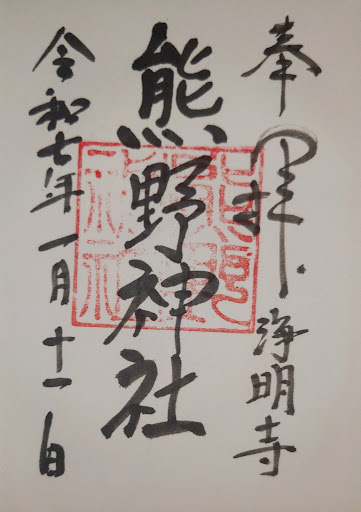 奉拝
浄明寺
熊野神社
令和七年一月十一日